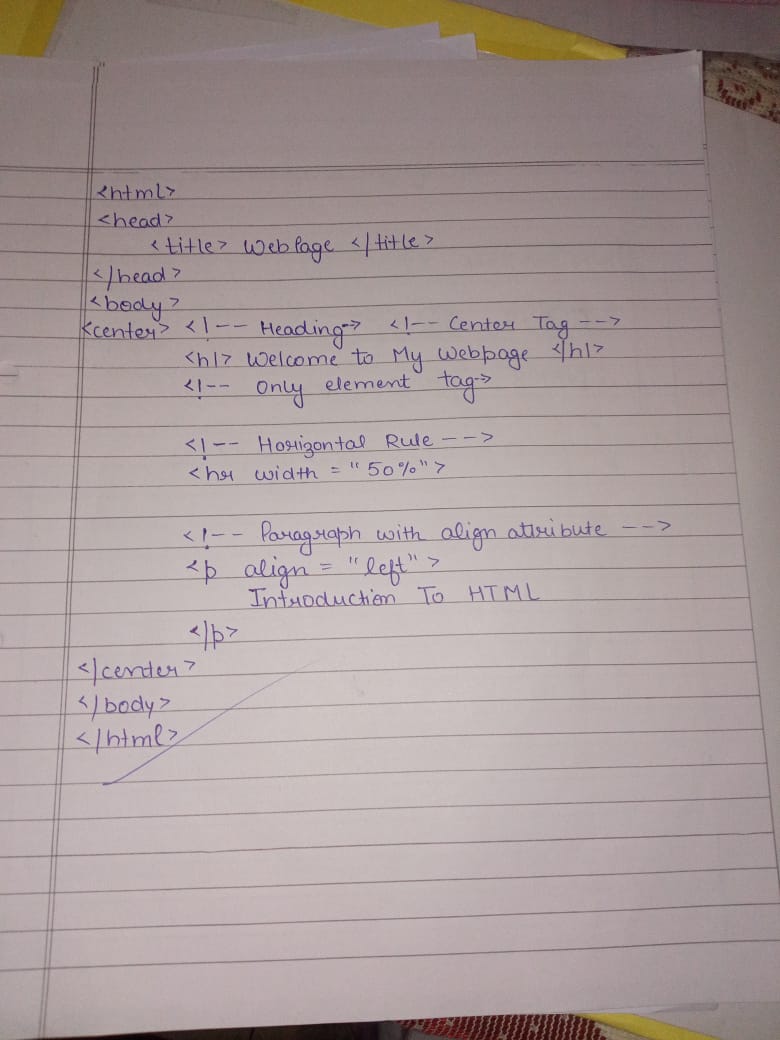 <html>
<head>
<title> Web Page </title>
</head>
<body>
<center> <!-- Heading--> <!-- Center Tag -->
<h1> Welcome to My Webpage </h1>
<!-- Only element tag->
<!-- Horizontal Rule -->
<hr width = "50%">
<!-- Paragraph with align attribute -->
<p align = "left">
Introduction To HTML
</p>
</center>
</body>
</html>